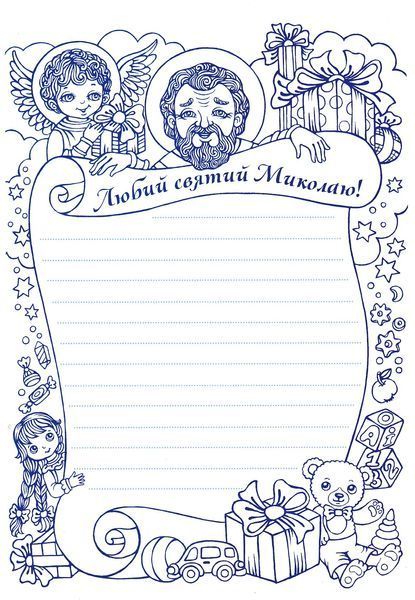 Любий святий Миколаю!
О
А
1
2